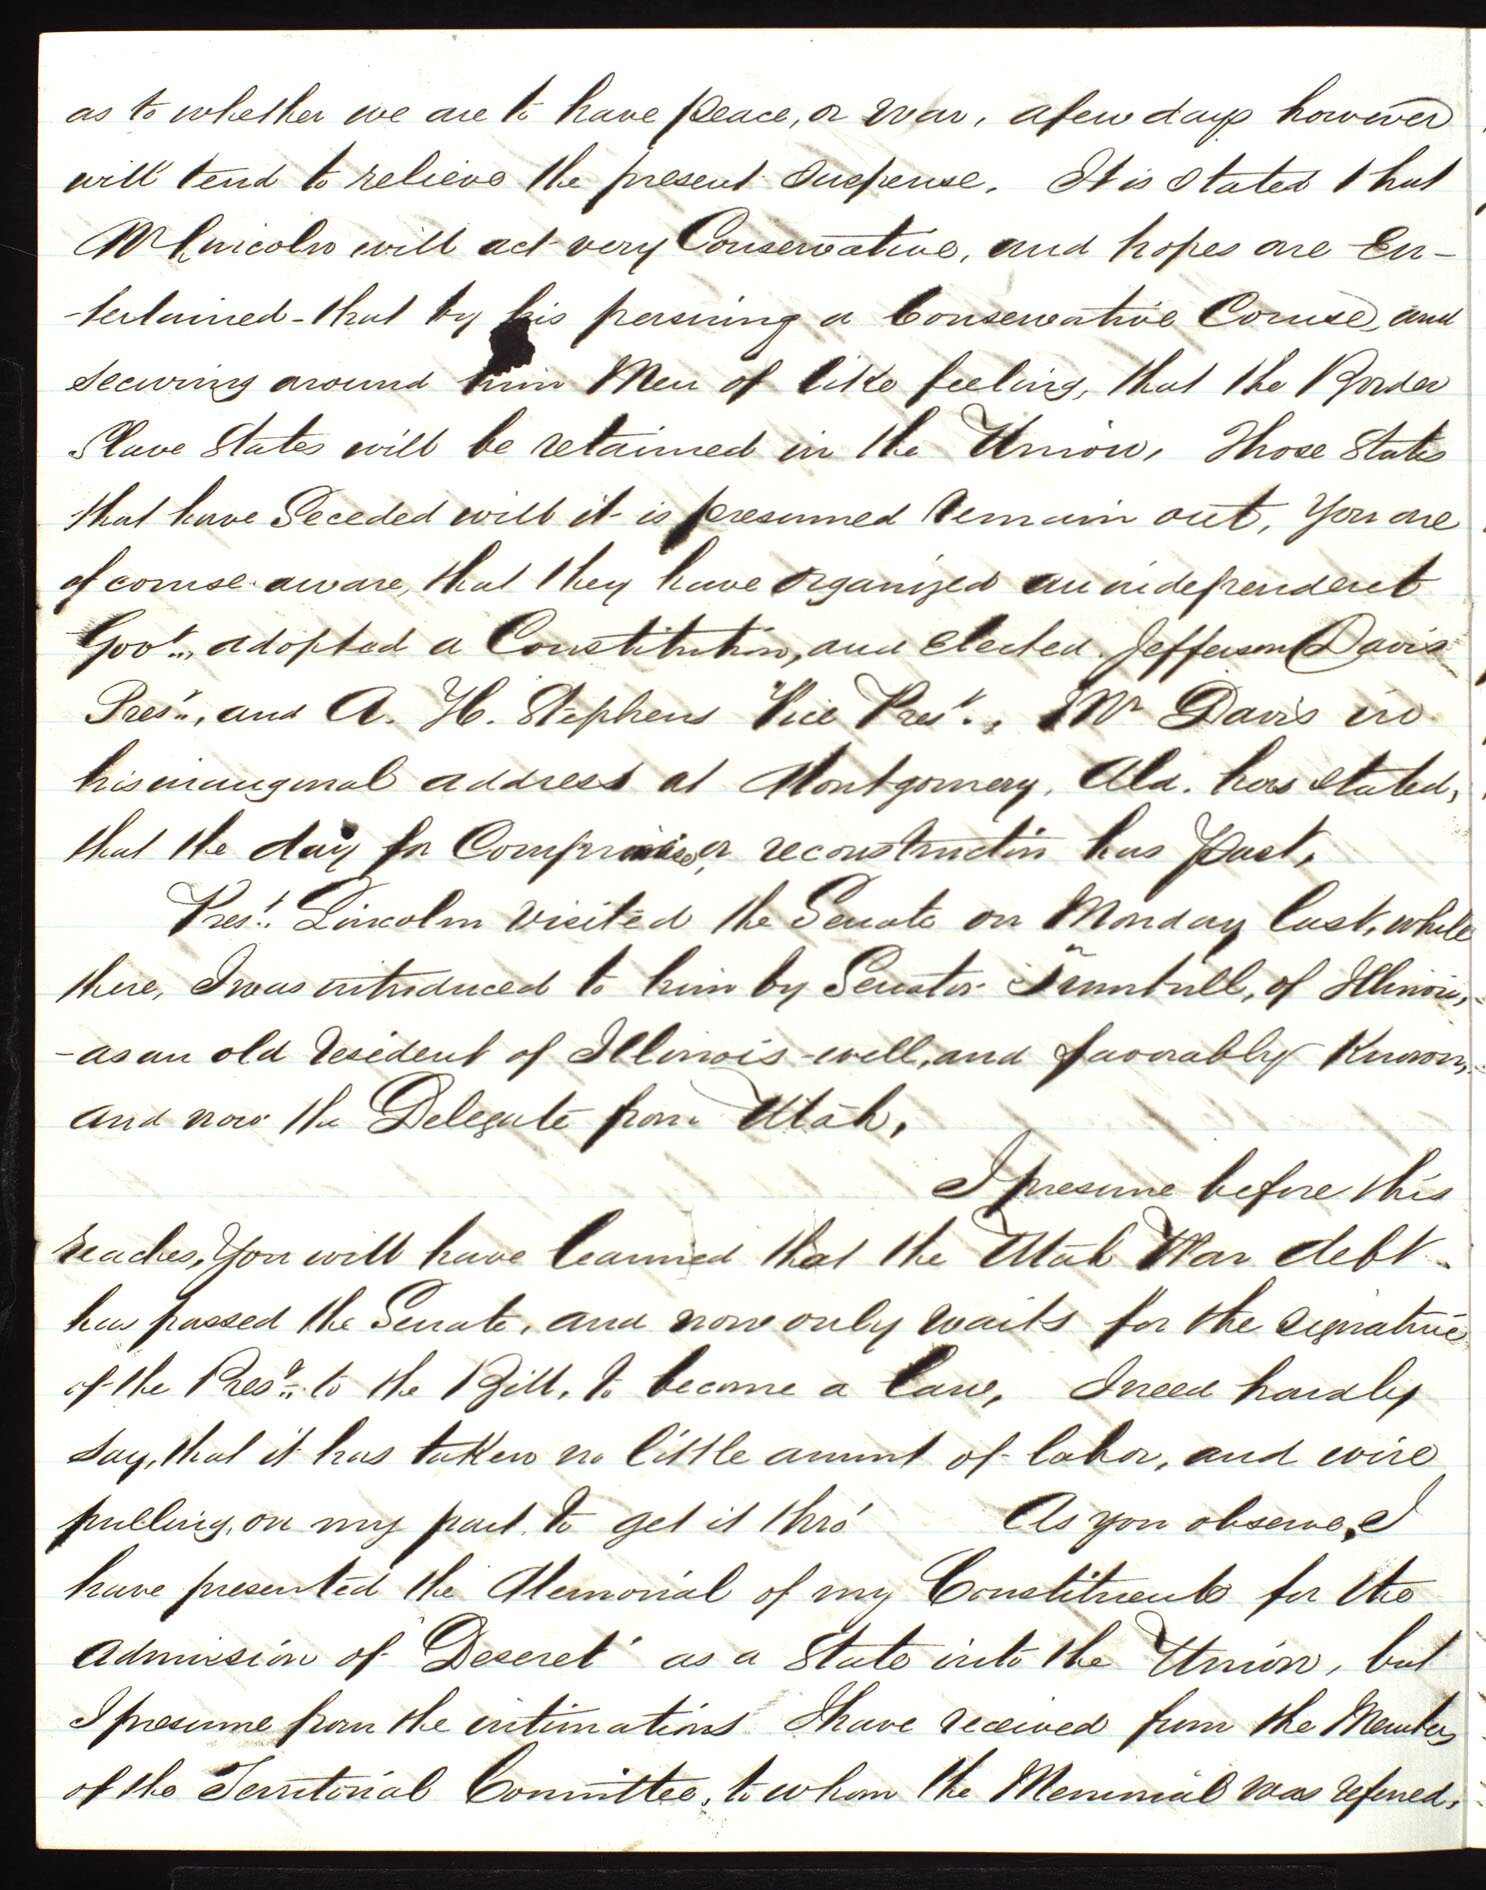 as to whether we are to have peace, or war, a few days however
will tend to relieve the present suspense. It is stated that
Mr Lincoln will act very Conservative, and hopes are En-
-tertained - that by his persuing a Conservative Course, and
securing around him Men of like feeling, that the Border
Slave States will be retained in the Union, Those States
that have Seceded will it is presumed remain out, You are
of course aware, that they have organized an independent
Govt., adopted a Constitution, and elected Jefferson Davis
Prest., and A. H. Stephens Vice Prest., Mr Davis in
his inaugural address at Montgomery, Ala. has stated,
that the day for Compromise, or reconstruction has past,
Prest. Lincoln visited the Senate on Monday last, while
there, I was introduced to him by Senator Trumbull, of Illinois,
- as an old resident of Illinois - well, and favorably Known,
and now the Delegate from Utah,
I presume before this
reaches, You will have learned that the Utah War debt
has passed the Senate, and now only waits for the signature
of the Prest. to the Bill, to become a law, I need hardly
say, that it has taken no little amnt of labor, and wire
pulling, on my part, to get it thro'
As you observe, I
have presented the Memorial of my Constituents for the
admission of "Deseret" as a State into the Union, but
I presume from the intimations I have received from the Members
of the Territorial Committee, to whom the Memorial was refered,